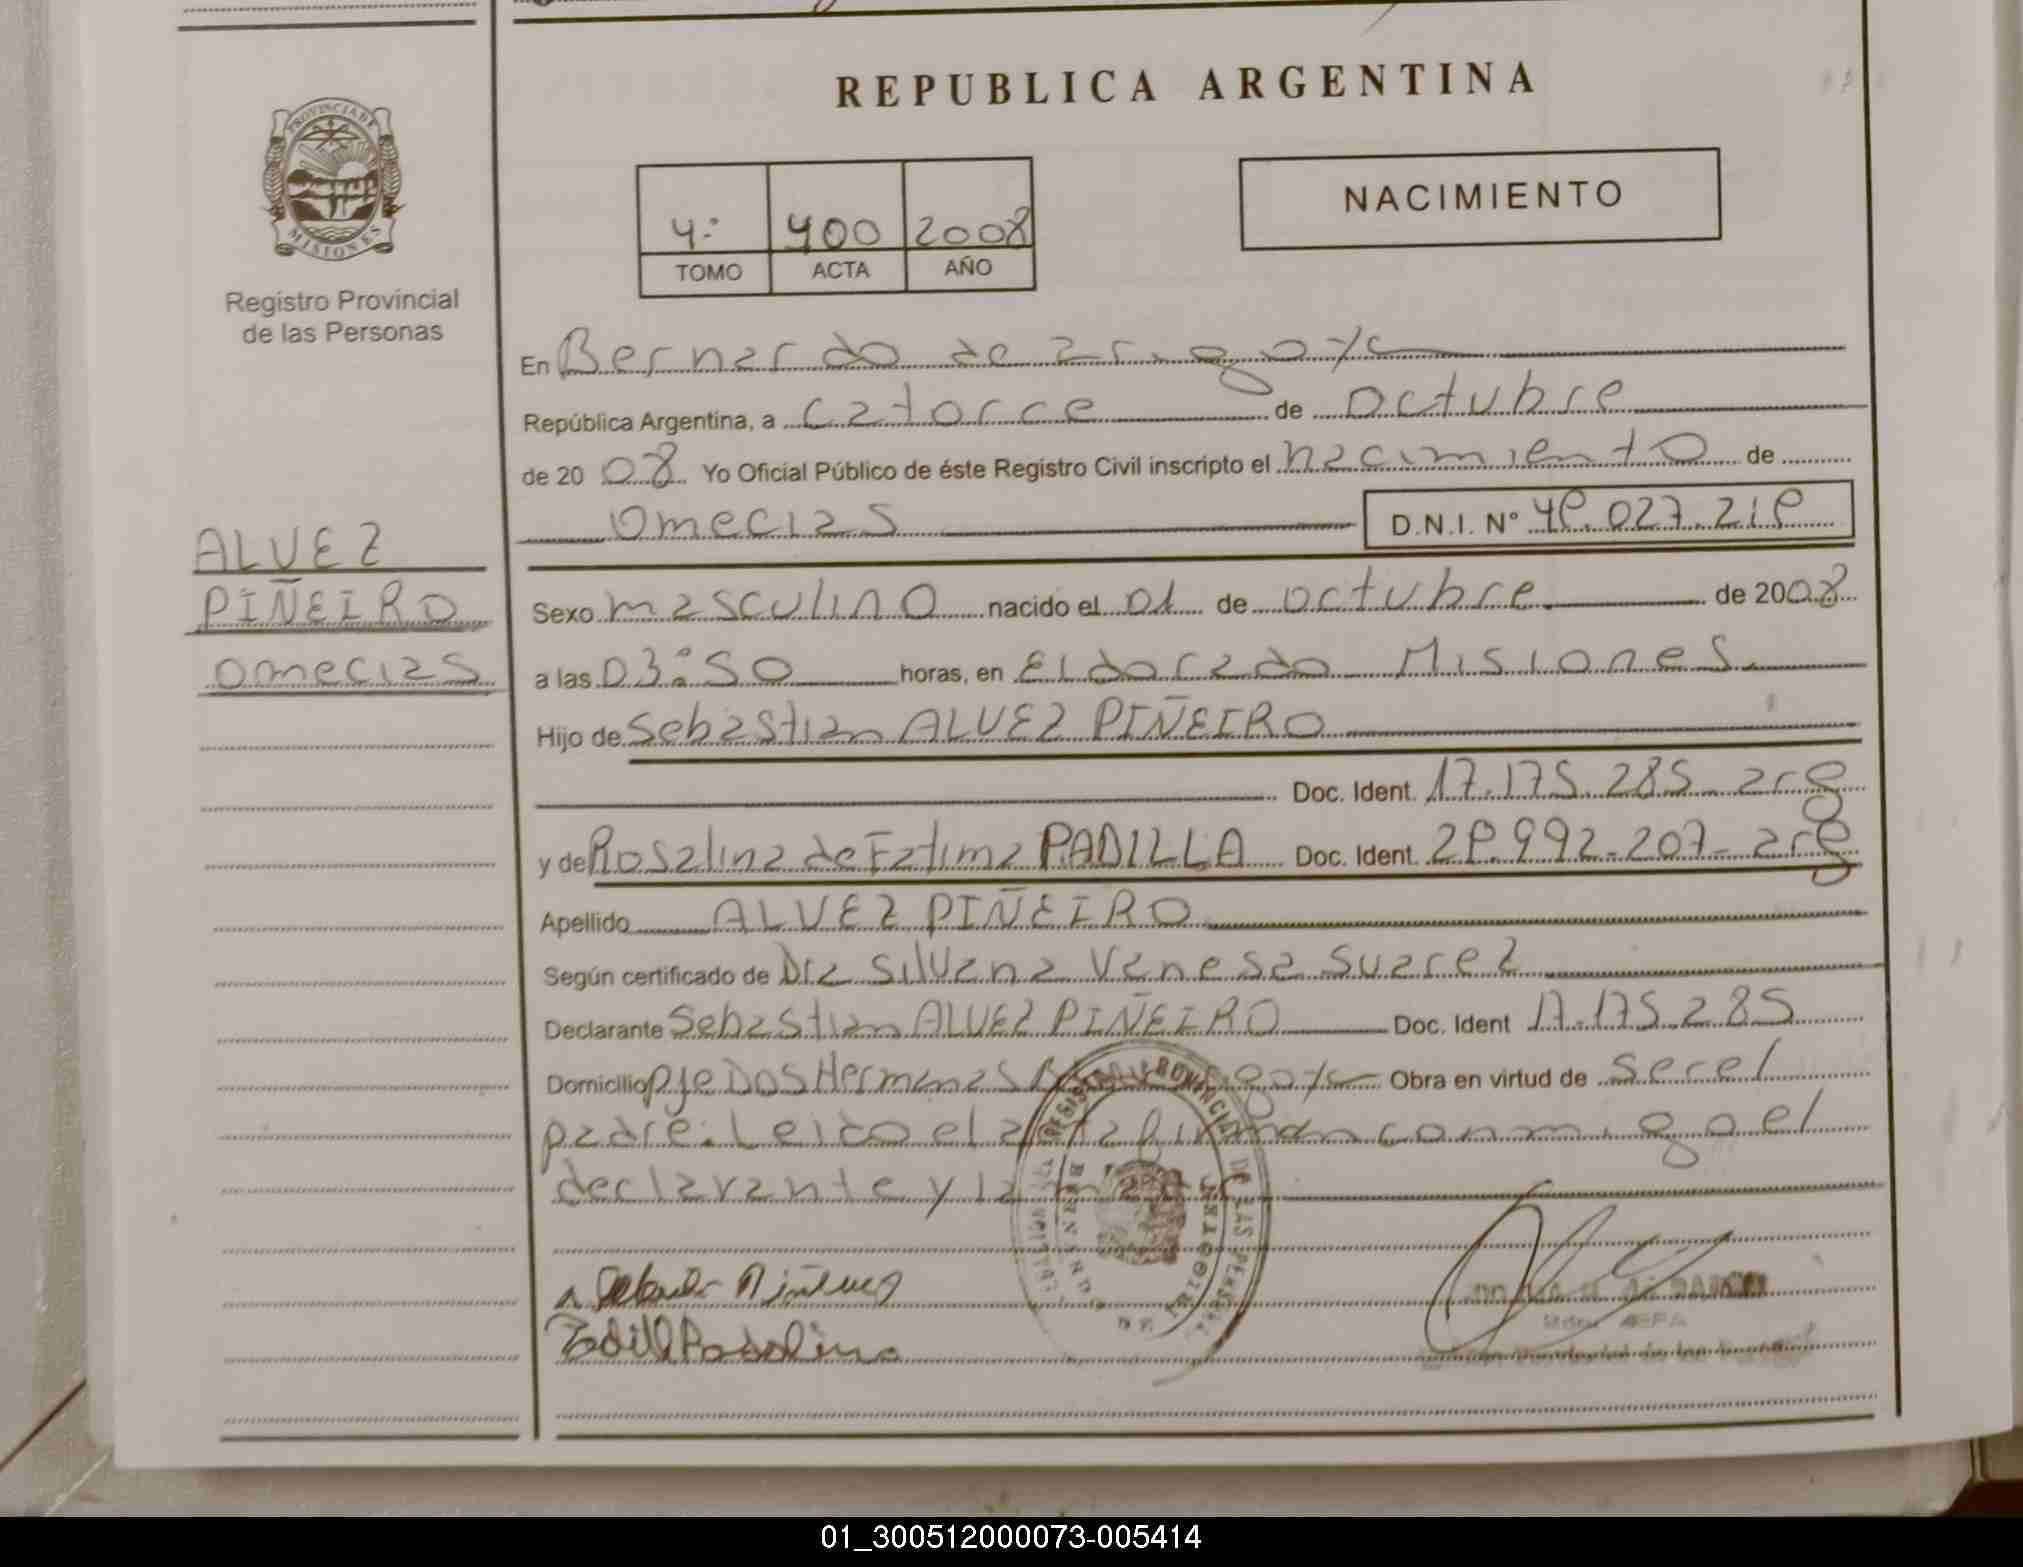 REPUBLICA ARGENTINA
PROVINCIA DE
MISIONES
Registro Provincial
de las Personas
4º 400 2008
TOMO ACTA AÑO
NACIMIENTO
En Bernardo de Irigoyen
República Argentina, a catorce de octubre
de 2008 Yo Oficial Público de éste Registro Civil inscripto el nacimiento de
Omecias D.N.I. Nº
ALVEZ
PIÑEIRO
Omecias
Sexo masculino nacido el 01 de octubre de 2008
a las 03:50 horas, en Eldorado Misiones
Hijo de Sebastian ALVEZ PIÑEIRO
Doc. Ident. 17.175.285-arg
y de Rosalina de Fatima PADILLA Doc. Ident.
Apellido ALVEZ PIÑEIRO
Según certificado de Dra Silvana Vanesa Suarez
Declarante Sebastian ALVEZ PIÑEIRO Doc. Ident 17.175.285
Domicilio pje Dos Hermanas Obra en virtud de ser el
padre. Leido el acta firman conmigo el
declarante y la
REGISTRO PROVINCIAL DE LAS PERSONAS
01_300512000073-005414